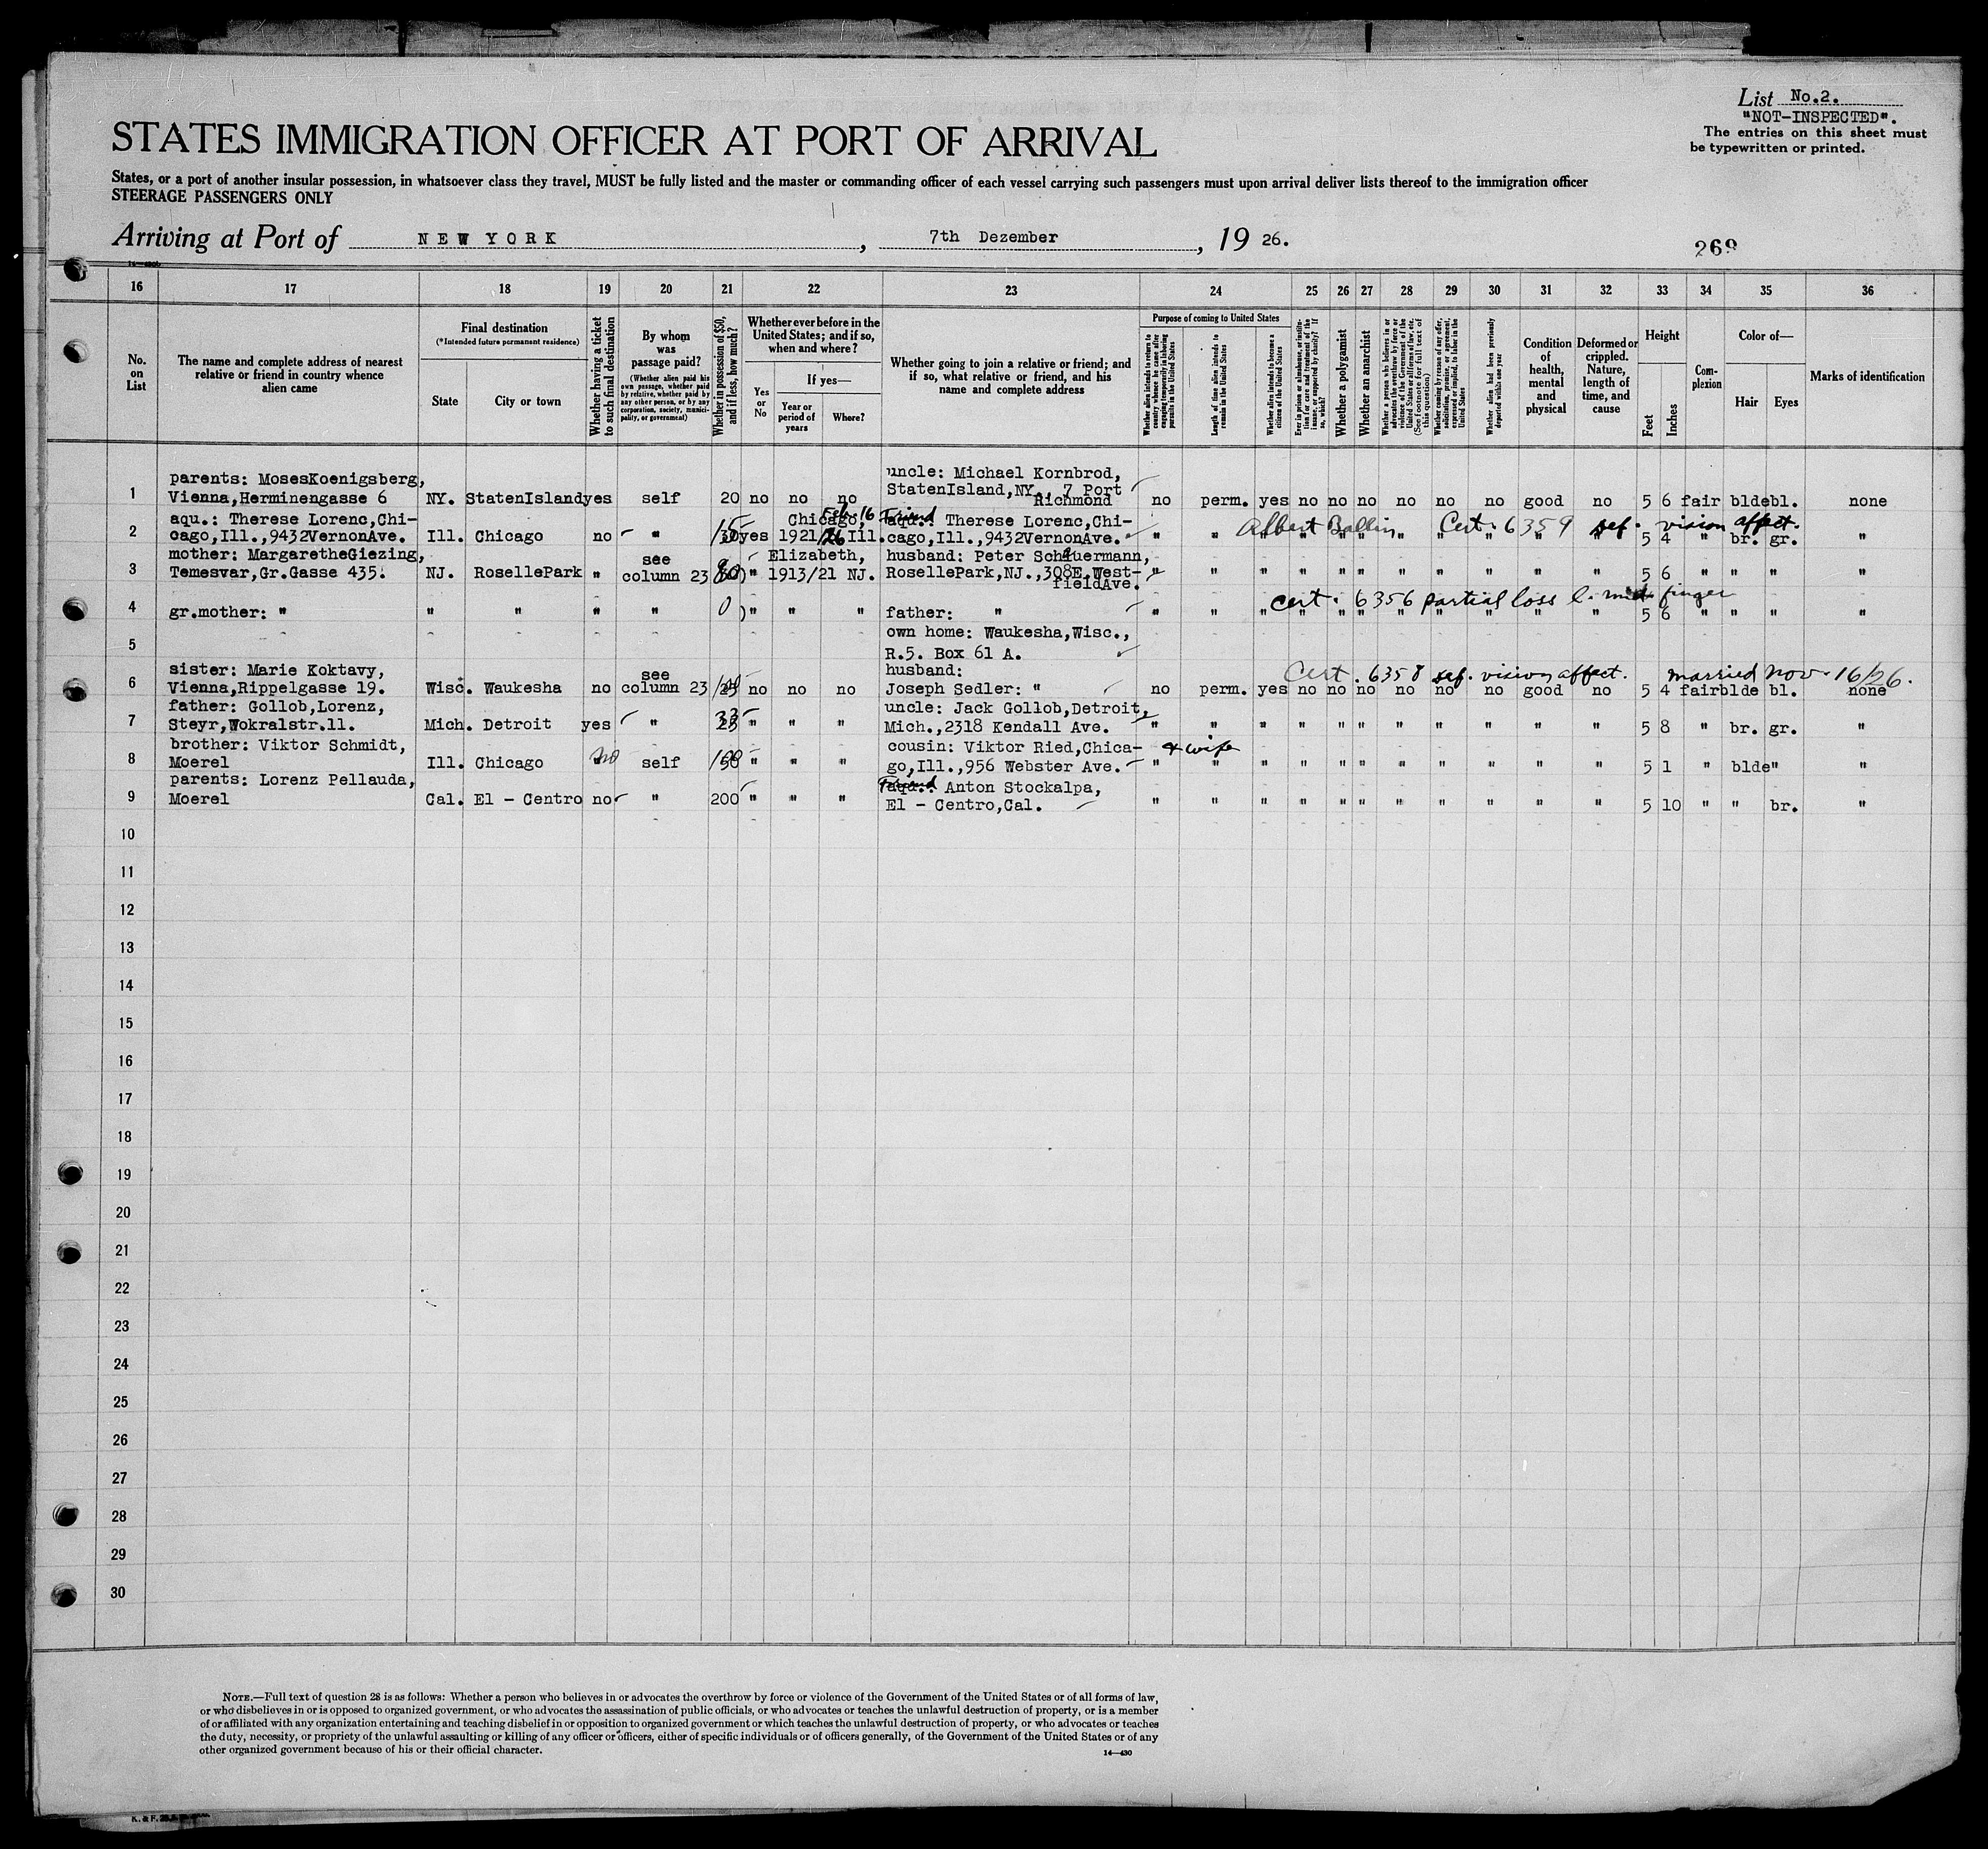 List No.2.
"NOT-INSPECTED".
The entries on this sheet must
be typewritten or printed.
STATES IMMIGRATION OFFICER AT PORT OF ARRIVAL
States, or a port of another insular possession, in whatsoever class they travel, MUST be fully listed and the master or commanding officer of each vessel carrying such passengers must upon arrival deliver lists thereof to the immigration officer
STEERAGE PASSENGERS ONLY
Arriving at Port of NEW YORK, 7th Dezember, 1926.
269
16 17 18 19 20 21 22 23 24 25 26 27 28 29 30 31 32 33 34 35 36
No. on List
The name and complete address of nearest relative or friend in country whence alien came
Final destination
(*Intended future permanent residence)
State
City or town
Whether having a ticket to such final destination
By whom was passage paid?
(Whether alien paid his own passage, whether paid by relative, whether paid by any other person, or by any corporation, society, municipality, or government)
Whether in possession of $50, and if less, how much?
Whether ever before in the United States; and if so, when and where?
Yes or No
If yes—
Year or period of years
Where?
Whether going to join a relative or friend; and if so, what relative or friend, and his name and complete address
Purpose of coming to United States
Whether alien intends to return to country whence he came after engaging temporarily in laboring pursuits in the United States
Length of time alien intends to remain in the United States
Whether alien intends to become a citizen of the United States
Ever in prison or almshouse, or institution for care and treatment of the insane, or supported by charity? If so, which?
Whether a polygamist
Whether an anarchist
Whether a person who believes in or advocates the overthrow by force or violence of the Government of the United States or all forms of law, etc. (See footnote for full text of this question)
Whether coming by reason of any offer, solicitation, promise, or agreement, expressed or implied, to labor in the United States
Whether alien had been previously deported within one year
Condition of health, mental and physical
Deformed or crippled. Nature, length of time, and cause
Height
Feet
Inches
Complexion
Color of—
Hair
Eyes
Marks of identification
1 parents: MosesKoenigsberg,
Vienna,Herminengasse 6 NY. StatenIsland yes self 20 no no no
uncle: Michael Kornbrod,
StatenIsland,NY., 7 Port
Richmond no perm. yes no no no no no no good no 5 6 fair blde bl. none
2 aqu.: Therese Lorenc,Chi-
cago,Ill.,9432VernonAve. Ill. Chicago no " yes 1921/26 Ill.
Chicago, Feb. 16
Friend
aqu.: Therese Lorenc,Chi-
cago,Ill.,9432VernonAve. " " " " " " " " " " " 5 4 " br. gr. "
Albert Ballin Cert. 6359 def. vision affect.
3 mother: MargaretheGiezing,
Temesvar,Gr.Gasse 435. NJ. RosellePark " see column 23 " 1913/21 NJ.
Elizabeth,
husband: Peter Schauermann,
RosellePark,NJ.,308E.West-
fieldAve. " " " " " " " " " " " 5 6 " " " "
4 gr.mother: " " " " " 0 ) " " "
father: " " " " " " " " " " " " 5 6 " " " "
cert. 6356 partial loss l. mid finger
5 own home: Waukesha,Wisc.,
R.5. Box 61 A.
6 sister: Marie Koktavy,
Vienna,Rippelgasse 19. Wisc. Waukesha no see column 23 no no no
husband:
Joseph Sedler: " no perm. yes no no no no no no good no 5 4 fair blde bl. none
Cert. 6358 def. vision affect. married Nov. 16/26.
7 father: Gollob,Lorenz,
Steyr,Wokralstr.11. Mich. Detroit yes " " " "
uncle: Jack Gollob,Detroit,
Mich.,2318 Kendall Ave. " " " " " " " " " " " 5 8 " br. gr. "
8 brother: Viktor Schmidt,
Moerel Ill. Chicago no self " " "
cousin: Viktor Ried,Chica-
go,Ill.,956 Webster Ave. " " " " " " " " " " " 5 1 " blde " "
& wife
9 parents: Lorenz Pellauda,
Moerel Cal. El - Centro no " 200 " " "
Friend
aqu.: Anton Stockalpa,
El - Centro,Cal. " " " " " " " " " " " 5 10 " " br. "
10
11
12
13
14
15
16
17
18
19
20
21
22
23
24
25
26
27
28
29
30
NOTE.—Full text of question 28 is as follows: Whether a person who believes in or advocates the overthrow by force or violence of the Government of the United States or of all forms of law,
or who disbelieves in or is opposed to organized government, or who advocates the assassination of public officials, or who advocates or teaches the unlawful destruction of property, or is a member
of or affiliated with any organization entertaining and teaching disbelief in or opposition to organized government or which teaches the unlawful destruction of property, or who advocates or teaches
the duty, necessity, or propriety of the unlawful assaulting or killing of any officer or officers, either of specific individuals or of officers generally, of the Government of the United States or of any
other organized government because of his or their official character.
14—430